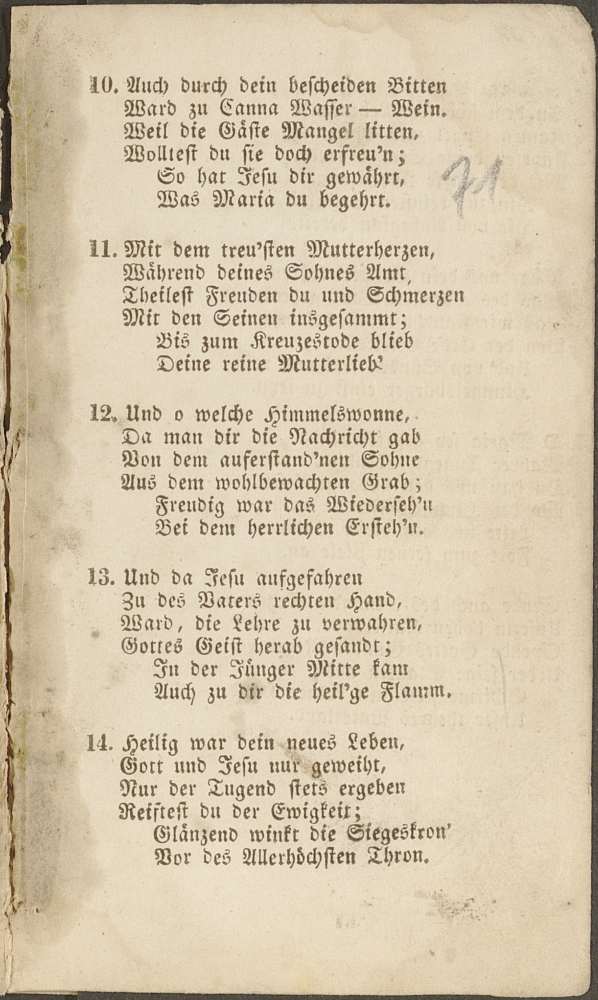 10. Auch durch dein bescheiden Bitten
Ward zu Canna Wasser — Wein.
Weil die Gäste Mangel litten,
Wolltest du sie doch erfreu'n;
So hat Jesu dir gewährt,
Was Maria du begehrt.
71
11. Mit dem treu'sten Mutterherzen,
Während deines Sohnes Amt,
Theilest Freuden du und Schmerzen
Mit den Seinen insgesammt;
Bis zum Kreuzestode blieb
Deine reine Mutterlieb'
12. Und o welche Himmelswonne,
Da man dir die Nachricht gab
Von dem auferstand'nen Sohne
Aus dem wohlbewachten Grab;
Freudig war das Wiederseh'n
Bei dem herrlichen Ersteh'n.
13. Und da Jesu aufgefahren
Zu des Vaters rechten Hand,
Ward, die Lehre zu verwahren,
Gottes Geist herab gesandt;
In der Jünger Mitte kam
Auch zu dir die heil'ge Flamm.
14. Heilig war dein neues Leben,
Gott und Jesu nur geweiht,
Nur der Tugend stets ergeben
Reiftest du der Ewigkeit;
Glänzend winkt die Siegeskron'
Vor des Allerhöchsten Thron.